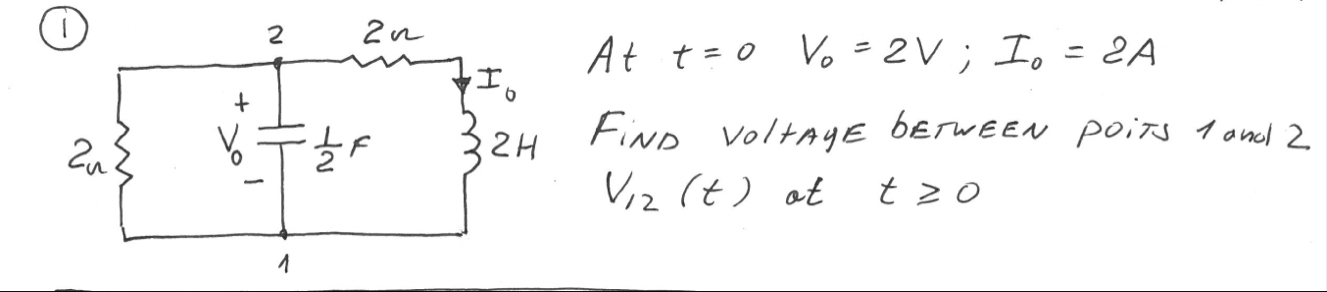 ①
2
2Ω
I₀
+
V₀
−
½F
2Ω
2H
1
At t=0 V₀ = 2V ; I₀ = 2A
FIND VOLTAGE BETWEEN POITS 1 and 2
V₁₂ (t) at t ≥ 0